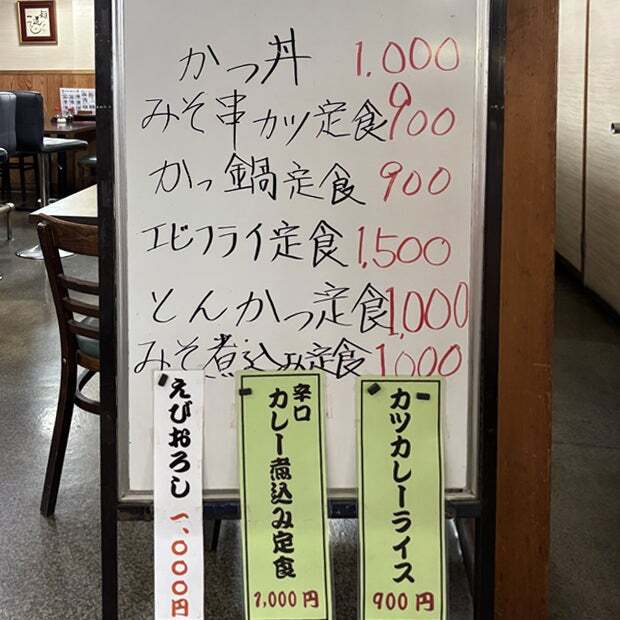 かつ丼 1,000
みそ串カツ定食 900
かつ鍋定食 900
エビフライ定食 1,500
とんかつ定食 1,000
みそ煮込み定食 1,000
えびおろし 一、〇〇〇円
辛口
カレー煮込み定食
1,000円
カツカレーライス
900円